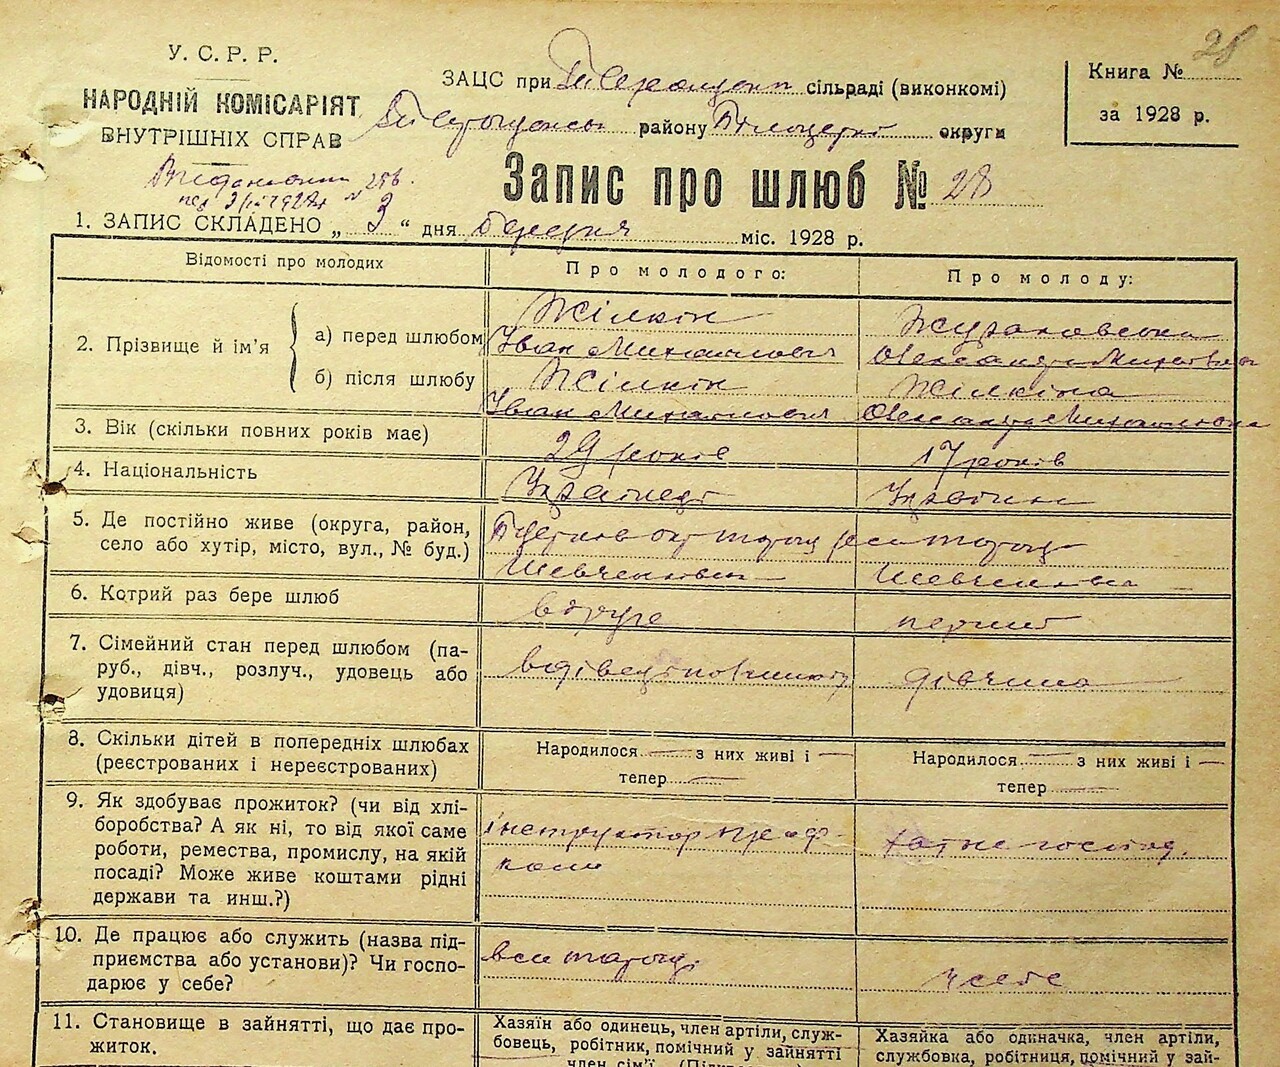 28
У. С. Р. Р.
НАРОДНІЙ КОМІСАРІЯТ
ВНУТРІШНІХ СПРАВ
ЗАЦС при сільраді (виконкомі)
району Білоцерк округи
Книга №
за 1928 р.
Запис про шлюб № 28
1. ЗАПИС СКЛАДЕНО „ 3 “ дня березня міс. 1928 р.
Відомості про молодих
Про молодого:
Про молоду:
2. Прізвище й ім'я
а) перед шлюбом
Жілкін
Іван Михайлович
Олександра
б) після шлюбу
Жілкін
Іван Михайлович
Жілкіна
Олександра Михайлівна
3. Вік (скільки повних років має)
29 років
17 років
4. Національність
Українець
Українка
5. Де постійно живе (округа, район,
село або хутір, місто, вул., № буд.)
Шевченківська
Шевченківська
6. Котрий раз бере шлюб
вдруге
перший
7. Сімейний стан перед шлюбом (па-
руб., дівч., розлуч., удовець або
удовиця)
вдівець
дівчина
8. Скільки дітей в попередніх шлюбах
(реєстрованих і нереєстрованих)
Народилося — з них живі і —
тепер —
Народилося — з них живі і —
тепер —
9. Як здобуває прожиток? (чи від хлі-
боробства? А як ні, то від якої саме
роботи, ремества, промислу, на якій
посаді? Може живе коштами рідні
держави та инш.?)
інструктор
хатнє господ.
10. Де працює або служить (назва під-
приємства або установи)? Чи госпо-
дарює у себе?
у себе
11. Становище в зайнятті, що дає про-
житок.
Хазяїн або одинець, член артіли, служ-
бовець, робітник, помічний у зайнятті
член сім'ї
Хазяйка або одиначка, член артіли,
службовка, робітниця, помічний у зай-